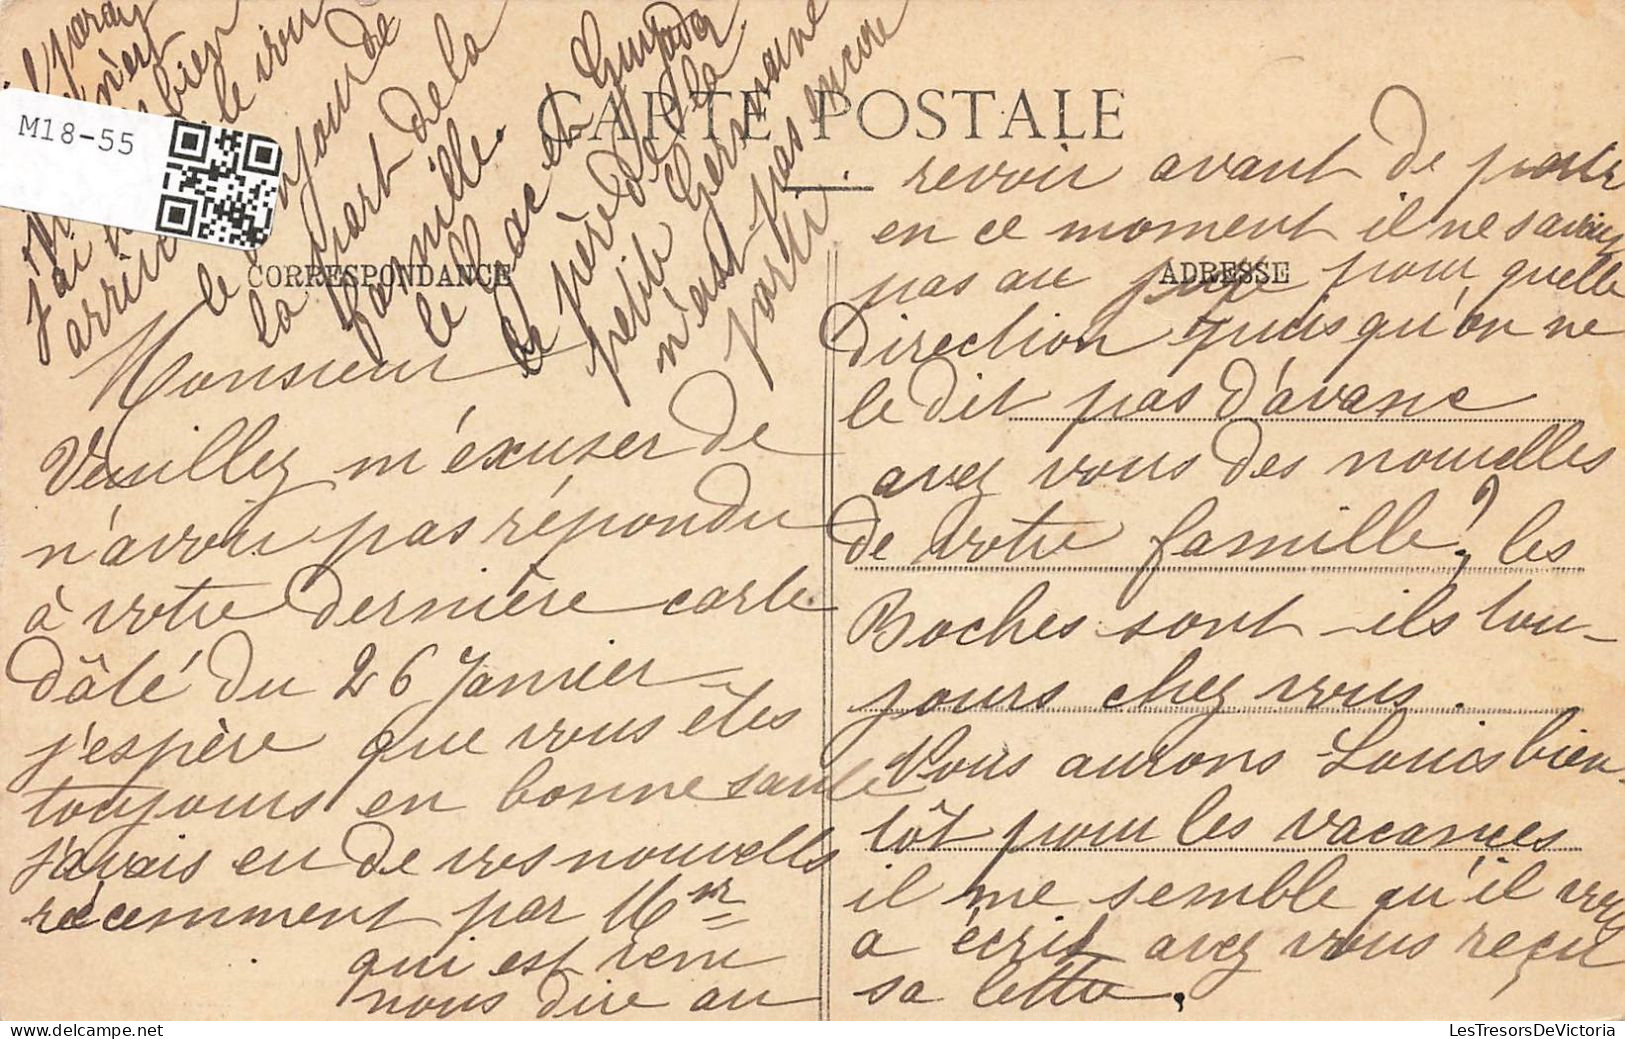 M18-55
CARTE POSTALE
CORRESPONDANCE
ADRESSE
Monsieur
Veuillez m'éxuser de
n'avoir pas répondu
à votre dernière carte
dâté du 26 Janvier
j'espère que vous êtes
toujours en bonne santé
j'avais eu de vos nouvells
récemment par Mr
qui est venu
nous dire au
revoir avant de partir
en ce moment il ne savais
pas au juge pour quelle
direction puisqu'on ne
le dit pas d'avanc
avez vous des nouvelles
de votre famille? les
Boches sont-ils tou-
jours chez vous.
Vous aurons Louis bien
tôt pour les vacances
il me semble qu'il vous
a écrit avez vous reçu
sa lettre.
il parai
n'est
bien
le voir
j'ai
arriv
le bonjour de
la part de la
famille.
le
et
le père de
petite Germaine
n'est pas encore
parti
LesTresorsDeVictoria